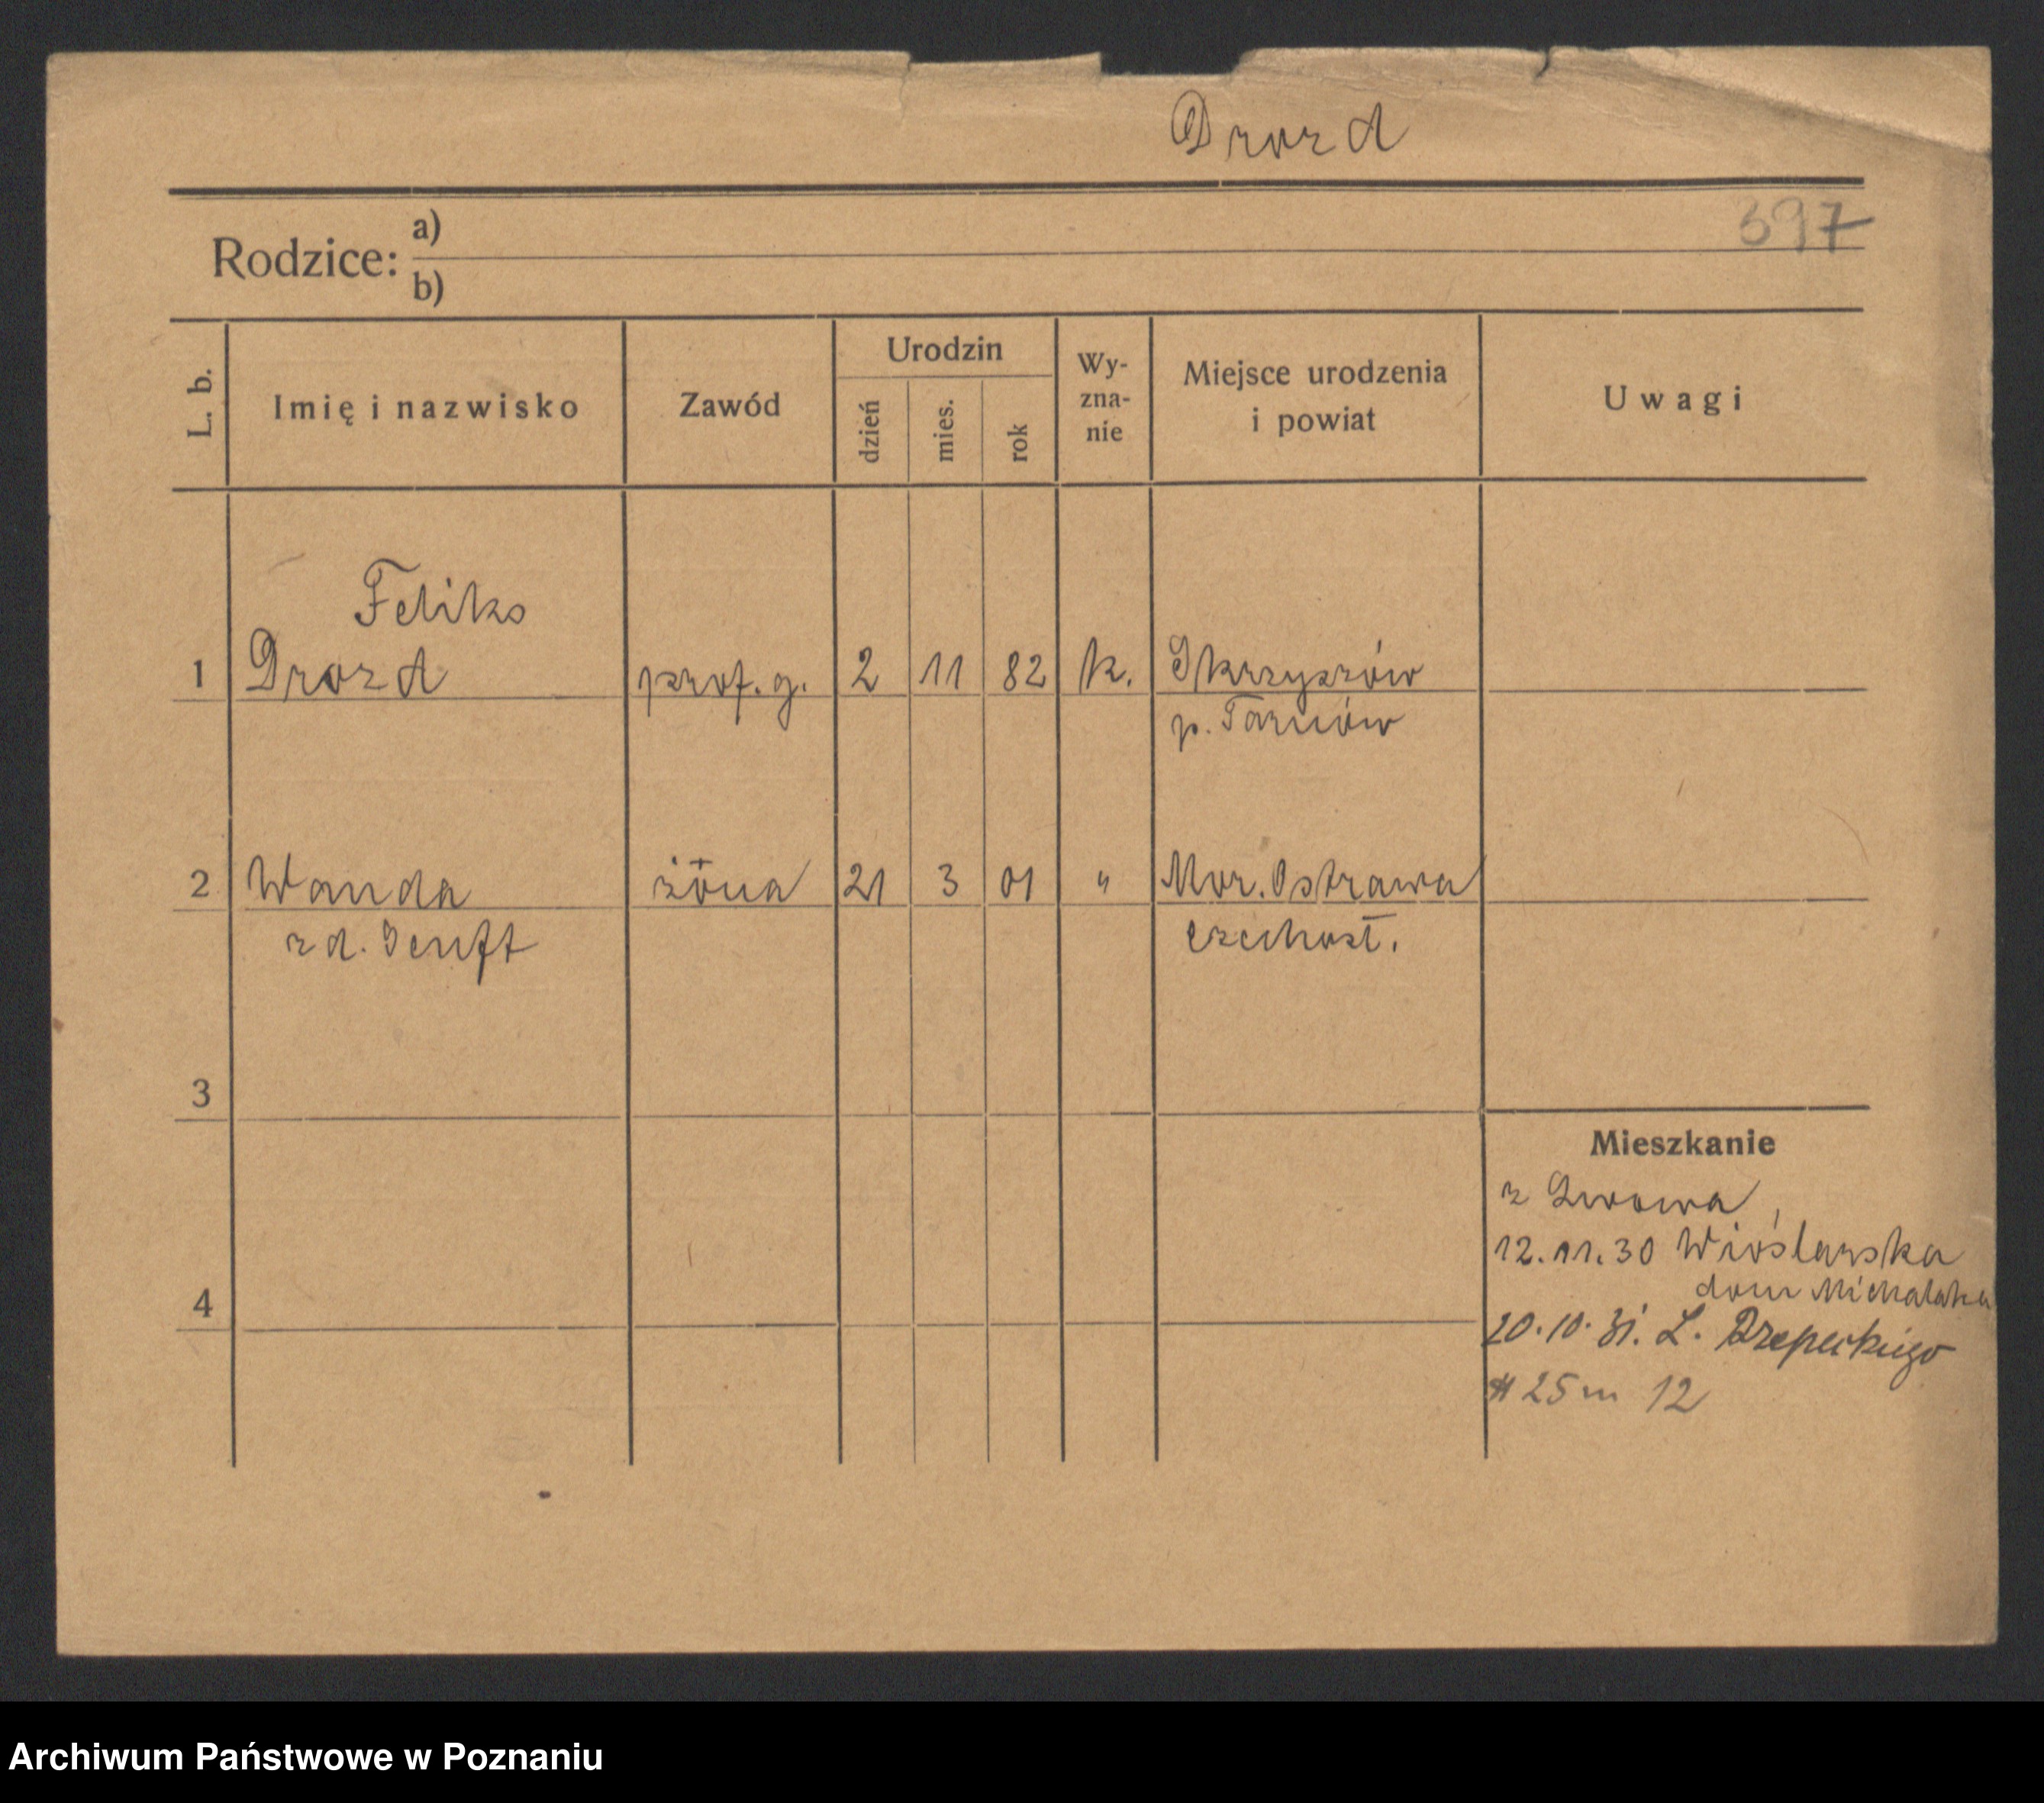 Drozd
397
Rodzice: a)
b)
L. b.
Imię i nazwisko
Zawód
Urodzin
dzień
mies.
rok
Wy-
zna-
nie
Miejsce urodzenia
i powiat
Uwagi
Feliks
1 Drozd prof. g. 2 11 82 k. Skrzyszów
p. Tarnów
2 Wanda żona 21 3 01 " Mor. Ostrawa
z d. Senft czechosł.
3
Mieszkanie
z Lwowa
12.11.30 Wioślarska
dom Michalaka
4
20.10.31. L. Rzepeckiego
25 m 12
Archiwum Państwowe w Poznaniu